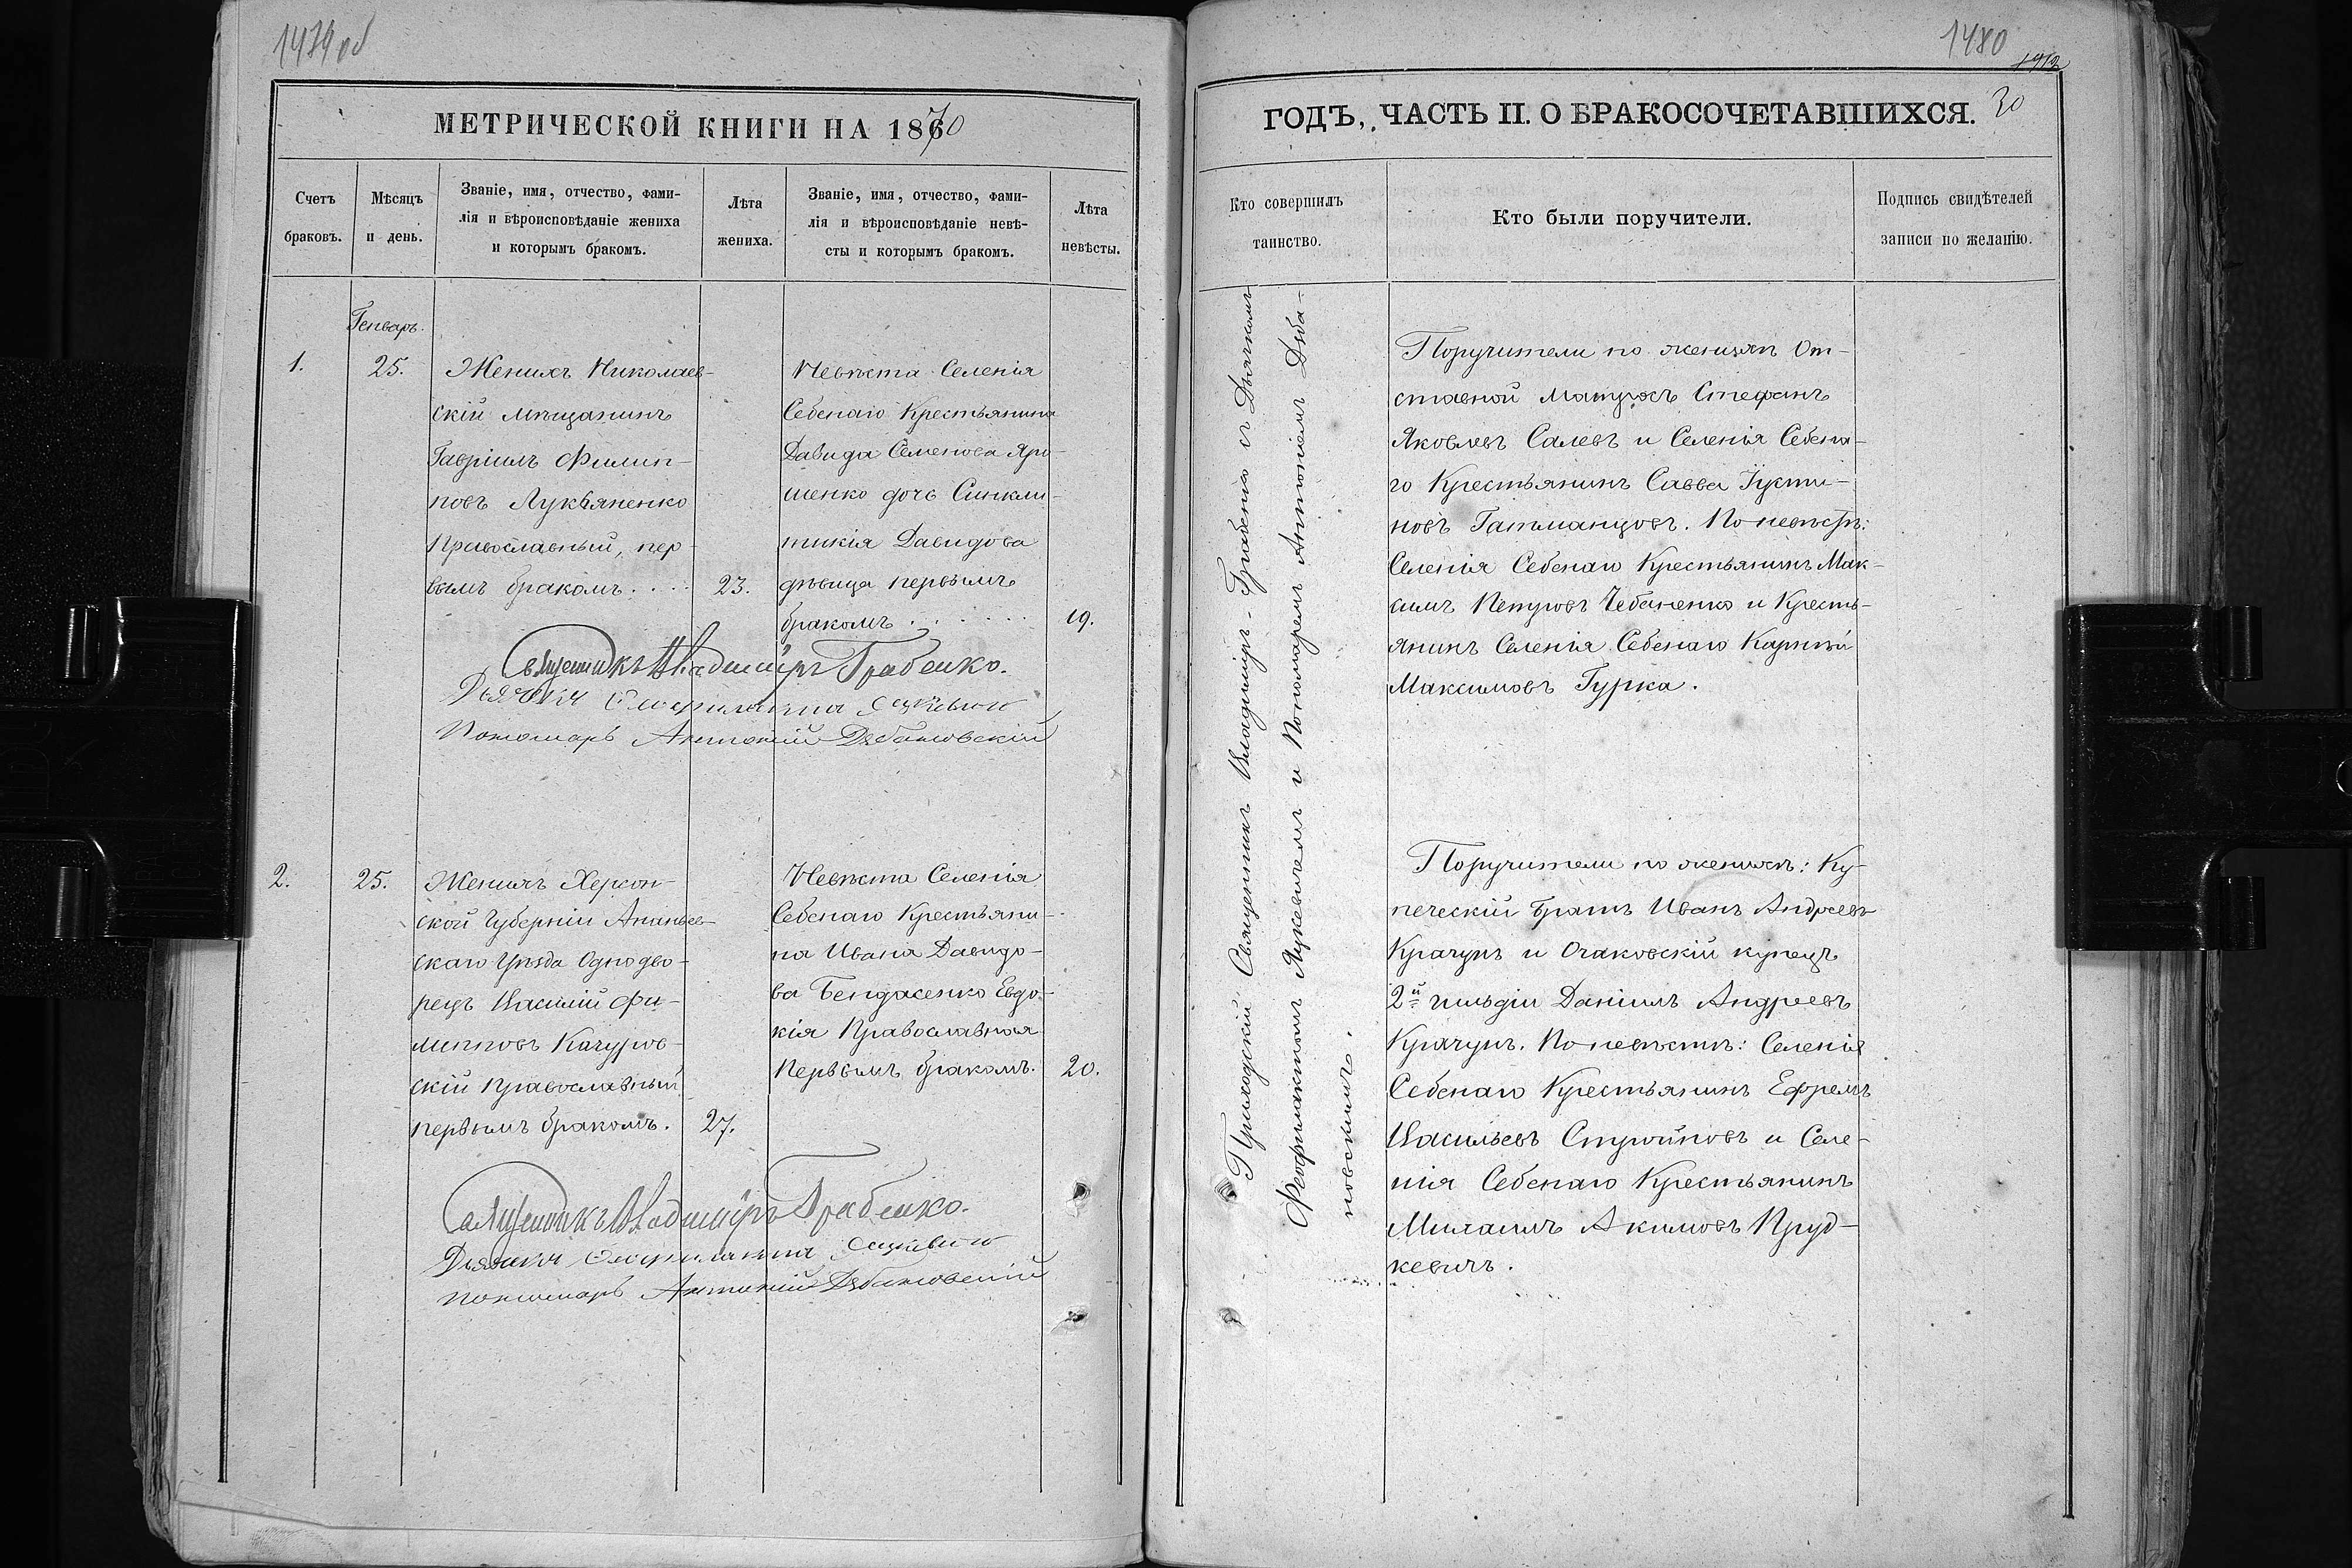 1479 об
МЕТРИЧЕСКОЙ КНИГИ НА 1870
Счетъ
браковъ.
Мѣсяцъ
и день.
Званіе, имя, отчество, фами-
лія и вѣроисповѣданіе жениха
и которымъ бракомъ.
Лѣта
жениха.
Званіе, имя, отчество, фами-
лія и вѣроисповѣданіе невѣ-
сты и которымъ бракомъ.
Лѣта
невѣсты.
Генварь.
1.
25.
Женихъ Николаев-
скій мѣщанинъ
Гавріилъ Филип-
повъ Лукьяненко
Православный, пер-
вымъ бракомъ....
23.
Невѣста Селенія
Себенаго Крестьянина
Давида Семенова Яро-
шенко дочь Синкли-
тикія Давидова
дѣвица первымъ
бракомъ......
19.
Священникъ Владиміръ Грабенко.
Дьячекъ
Пономарь Антоній Дзбановскій
2.
25.
Женихъ Херсон-
ской Губерніи Ананьев-
скаго Уѣзда Однодво-
рецъ Василій Фи-
липповъ Качуров-
скій Православный
первымъ бракомъ.
27.
Невѣста Селенія
Себенаго Крестьяни-
на Ивана Давидо-
ва Бендасенко Евдо-
кія Православная
Первымъ бракомъ.
20.
Священникъ Владиміръ Грабенко.
Дьячекъ
пономарь Антоній Дзбановскій
1480
1912
30
ГОДЪ, ЧАСТЬ II. О БРАКОСОЧЕТАВШИХСЯ.
Кто совершилъ
таинство.
Кто были поручители.
Подпись свидѣтелей
записи по желанію.
Приходскій Священникъ Владиміръ Грабенко съ Дьячкомъ
Феофилактомъ Яцкевичемъ и Пономаремъ Антоніемъ Дзба-
новскимъ.
Поручители по женихѣ От-
ставной Матросъ Стефанъ
Яковлевъ Салевъ и Селенія Себена-
го Крестьянинъ Савва Іусти-
новъ Гатманцовъ. По невѣстѣ:
Селенія Себенаго Крестьянинъ Мак-
симъ Петровъ Чебаненко и Кресть-
янинъ Селенія Себенаго Карпъ
Максимовъ Гурка.
Поручители по женихѣ: Ку-
печескій братъ Иванъ Андреевъ
Крачунъ и Очаковскій купецъ
2й гильдіи Даніилъ Андреевъ
Крачунъ. По невѣстѣ: Селенія
Себенаго Крестьянинъ Ефремъ
Васильевъ Стройновъ и Селе-
нія Себенаго Крестьянинъ
Михаилъ Акимовъ Пруд-
кевичъ.